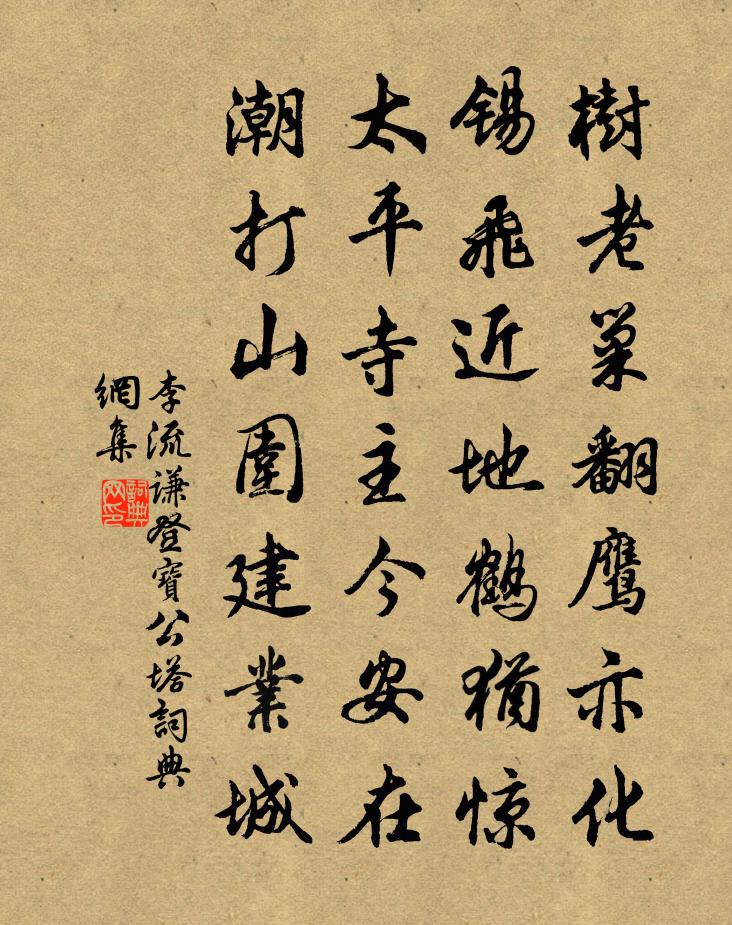 樹老巢翻鷹亦化
錫飛近地鶴猶惊
太平寺主今安在
潮打山圍建業城
李流谦登寶公塔詞典
網集
詞典
网印